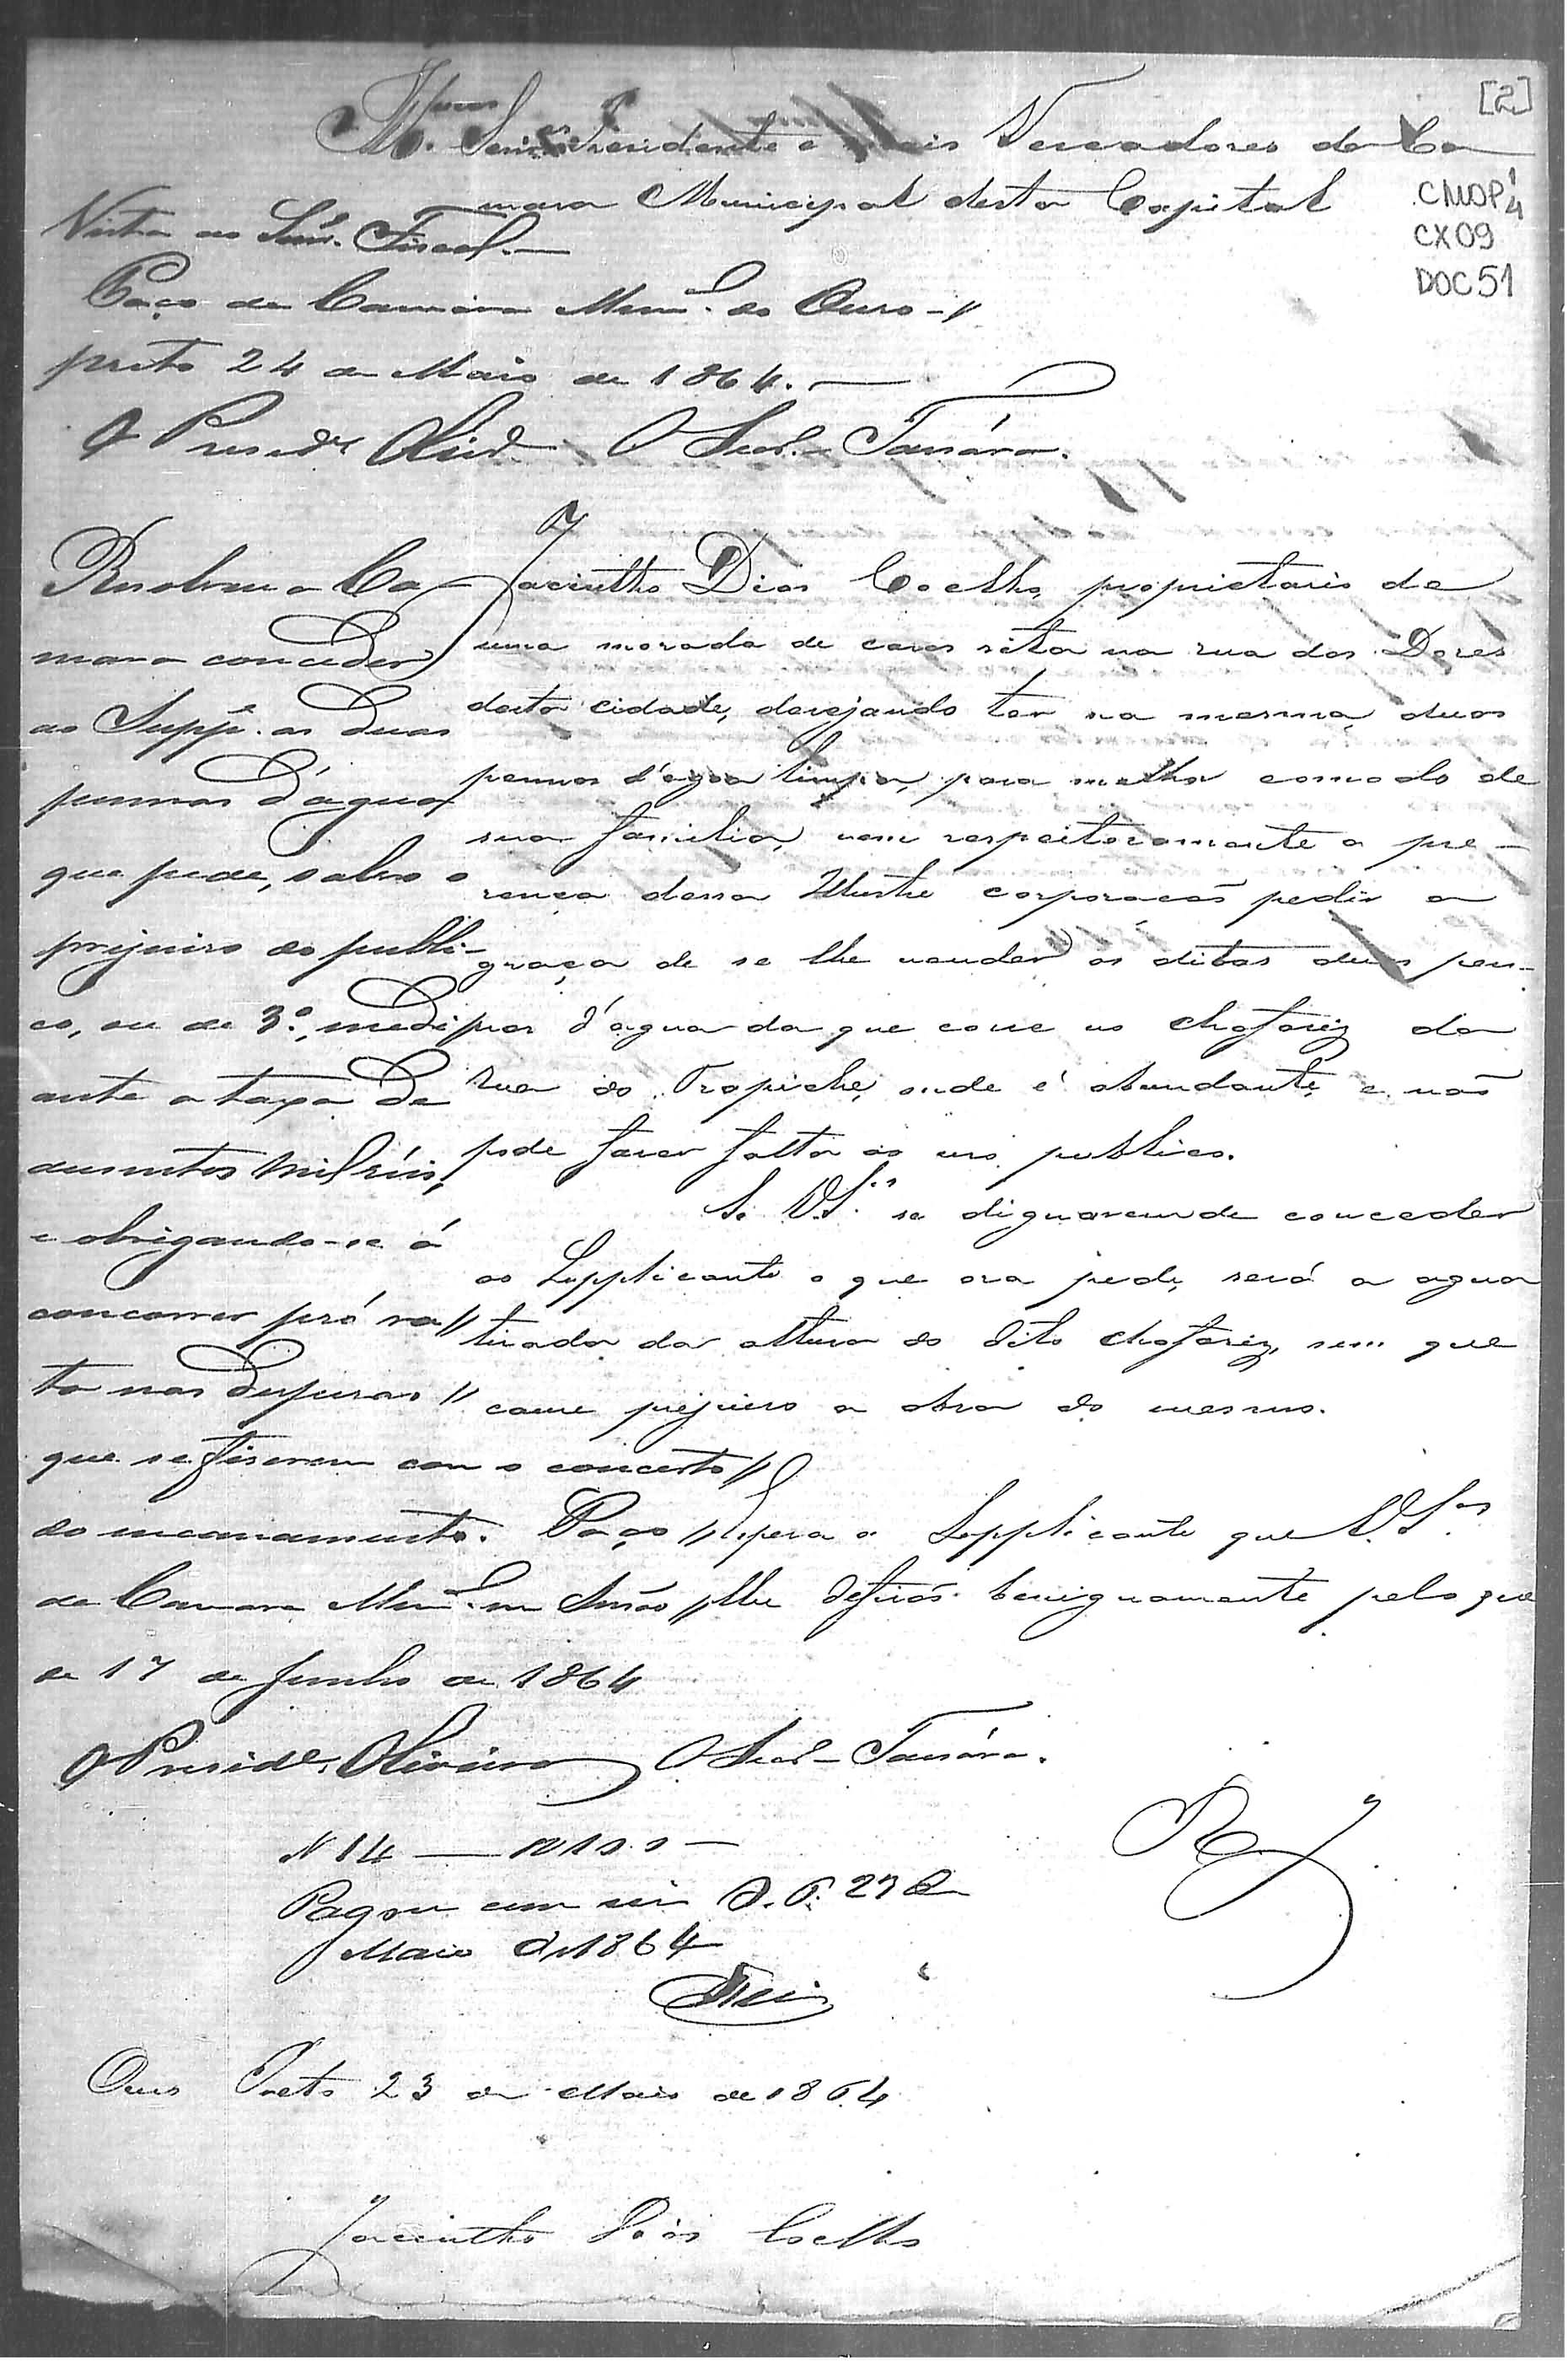 [2]
Illmos
Senres Presidente e mais Vereadores da Ca
mara Municipal desta Capital
CMOP
CX 09
DOC 51
Vista ao Snr. Fiscal.—
Paço da Camara Munal. do Ouro-//
preto 24 de Maio de 1864.—
O Preside O Secr.-
Jacintho Dias Coelho, proprietario de
uma morada de casas sita na rua das Dores
desta cidade, desejando ter na mesma, duas
pennas d'agoa limpa, para melhor comodo de
sua familia, vem respeitosamente a pre-
sença dessa Illustre corporacaõ pedir a
graça de se lhe vender as ditas duas pen-
nas d'agua da que corre no chafariz da
rua do Trapiche, onde é abundante, e naõ
pode fazer falta ao uso publico.
Se V.Sas se dignarem de conceder
ao Supplicante o que ora pede, será a agua
tirada da altura do dito chafariz, sem que
cause prejuiso a obra do mesmo.
Espera o Supplicante que V.Sas
lhe defiraõ benignamente pelo que
Resolveu a Ca-
mara conceder
ao Suppe. as duas
pennas d'agua
que pede, salvo o
prejuiso do publi-
co, ou de 3º, medi
ante a taxa de
dusentos mil réis,
e obrigando-se á
concorrer pró ra//
ta nas despesas //
que se fiserem com o concerto //
do encanamento. Paço //
da Camara Munal. em Sessão //
de 17 de Junho de 1864
O Preside. Oliveira O Secr.-
R J
N 14 —
Pagou cem reis O. P. 23 de
Maio de 1864
Ouro Preto 23 de Maio de 1864
Jacintho Dias Coelho